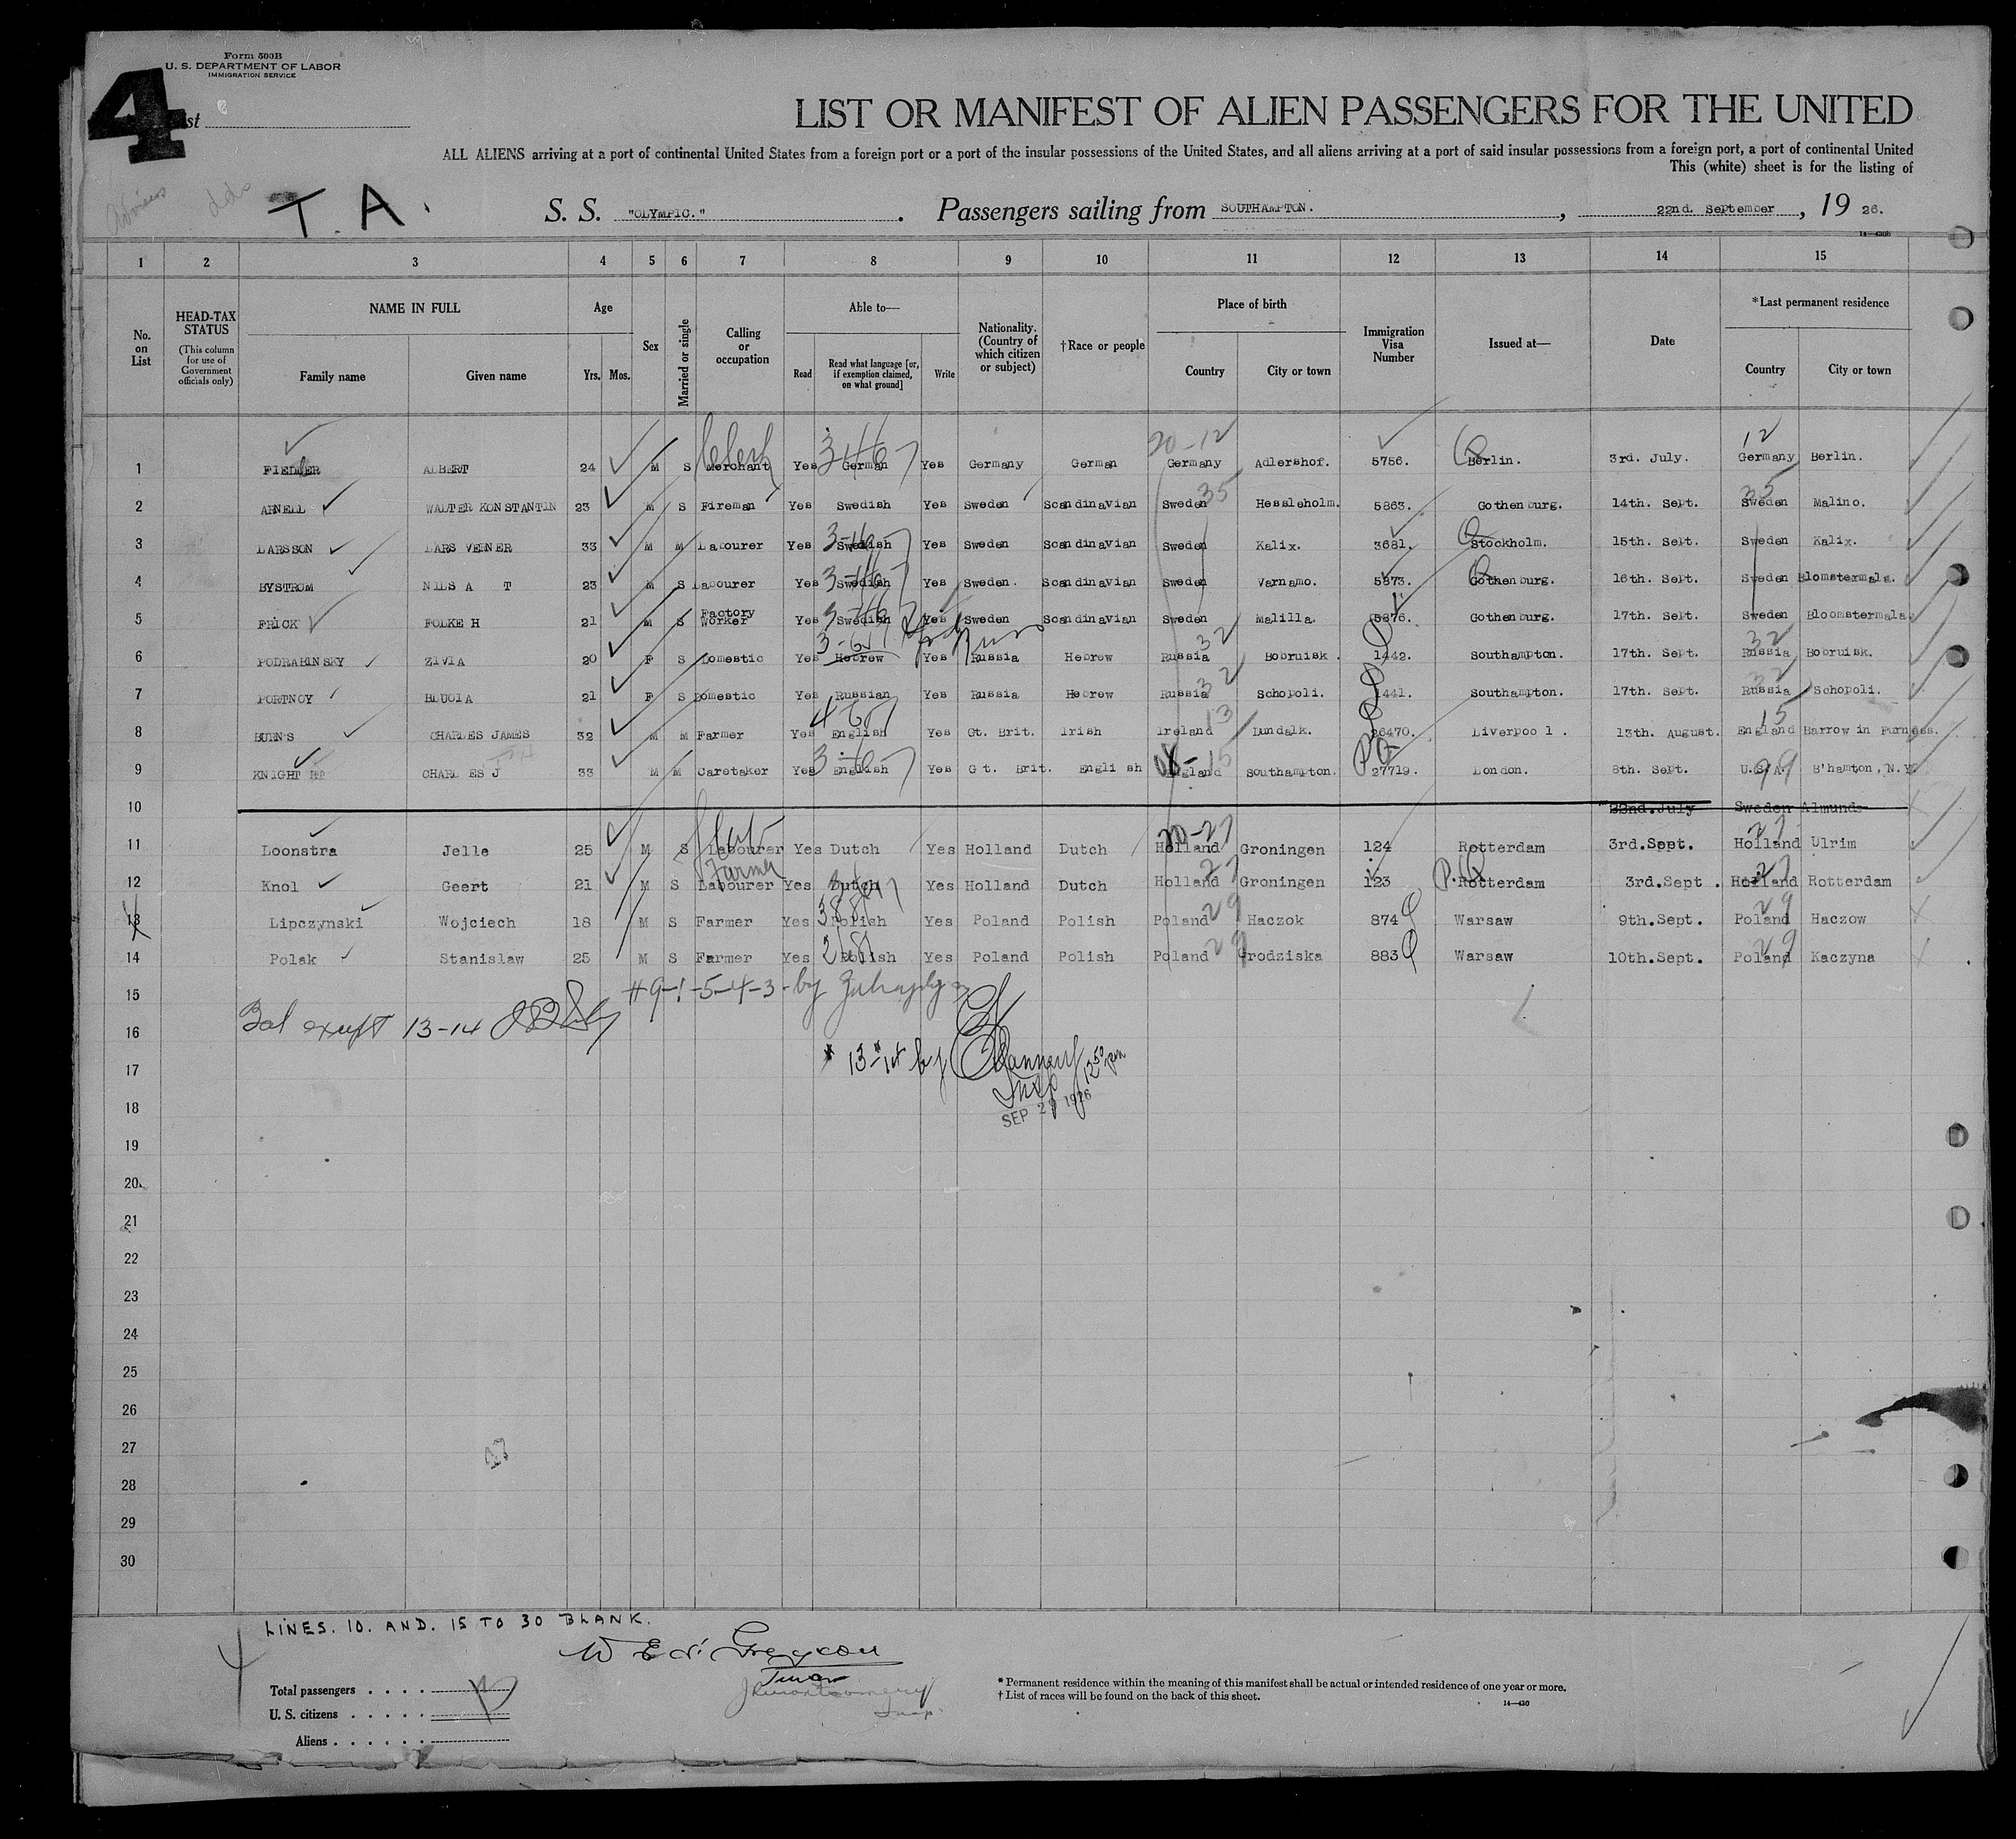 Form 500B
U. S. DEPARTMENT OF LABOR
IMMIGRATION SERVICE
4
st
LIST OR MANIFEST OF ALIEN PASSENGERS FOR THE UNITED
ALL ALIENS arriving at a port of continental United States from a foreign port or a port of the insular possessions of the United States, and all aliens arriving at a port of said insular possessions from a foreign port, a port of continental United
This (white) sheet is for the listing of
T. A.
S. S. "OLYMPIC." . Passengers sailing from SOUTHAMPTON. , 22nd. September , 19 26.
1 2 3 4 5 6 7 8 9 10 11 12 13 14 15
No. on List
HEAD-TAX STATUS (This column for use of Government officials only)
NAME IN FULL
Family name Given name
Age
Yrs. Mos.
Sex
Married or single
Calling or occupation
Able to—
Read Read what language [or, if exemption claimed, on what ground] Write
Nationality. (Country of which citizen or subject)
†Race or people
Place of birth
Country City or town
Immigration Visa Number
Issued at—
Date
*Last permanent residence
Country City or town
Clerk 3-467 20-12 12
1 FIEDLER ALBERT 24 M S Merchant Yes German Yes Germany German Germany Adlershof. 5756. Berlin. 3rd. July. Germany Berlin.
35 35
2 ARNELL WALTER KONSTANTIN 23 M S Fireman Yes Swedish Yes Sweden Scandinavian Sweden Hessleholm. 5863. Gothenburg. 14th. Sept. Sweden Malino.
3 LARSSON LARS VERNER 33 M M Labourer Yes Swedish Yes Sweden Scandinavian Sweden Kalix. 3681. Stockholm. 15th. Sept. Sweden Kalix.
4 BYSTROM NILS A T 23 M S Labourer Yes Swedish Yes Sweden. Scandinavian Sweden Varnamo. 5873. Gothenburg. 16th. Sept. Sweden Blomstermala.
5 FRICK FOLKE H 21 M S Factory Worker Yes Swedish Yes Sweden Scandinavian Sweden Malilla. 5876. Gothenburg. 17th. Sept. Sweden Bloomstermala.
32 32
6 PODRABINSKY ZIVIA 20 F S Domestic Yes Hebrew Yes Russia Hebrew Russia Bobruisk. 1442. Southampton. 17th. Sept. Russia Bobruisk.
32 32
7 PORTNOY BLUOIA 21 F S Domestic Yes Russian Yes Russia Hebrew Russia Schopoli. 1441. Southampton. 17th. Sept. Russia Schopoli.
13 15
8 BURNS CHARLES JAMES 32 M M Farmer Yes English Yes Gt. Brit. Irish Ireland Dundalk. 26470. Liverpool. 13th. August. England Barrow in Furness.
15 99
9 KNIGHT CHARLES J 33 M M Caretaker Yes English Yes Gt. Brit. English England Southampton. 27719. London. 8th. Sept. U.S.A. B'hamton, N.Y.
10 22nd.July Sweden Almunds
20-27 27
11 Loonstra Jelle 25 M S Labourer Yes Dutch Yes Holland Dutch Holland Groningen 124 Rotterdam 3rd.Sept. Holland Ulrim
Farmer 27 27
12 Knol Geert 21 M S Labourer Yes Dutch Yes Holland Dutch Holland Groningen 123 Rotterdam 3rd.Sept. Holland Rotterdam
29 29
13 Lipczynski Wojciech 18 M S Farmer Yes Polish Yes Poland Polish Poland Haczok 874 Warsaw 9th.Sept. Poland Haczow
29 29
14 Polak Stanislaw 25 M S Farmer Yes Polish Yes Poland Polish Poland Grodziska 883 Warsaw 10th.Sept. Poland Kaczyna
15
16 Bal except 13-14
17 13-14 by
Insp
18 SEP 29 1926
19
20
21
22
23
24
25
26
27
28
29
30
LINES. 10. AND. 15 TO 30 BLANK.
Total passengers
U. S. citizens
Aliens
* Permanent residence within the meaning of this manifest shall be actual or intended residence of one year or more.
† List of races will be found on the back of this sheet.
14—430